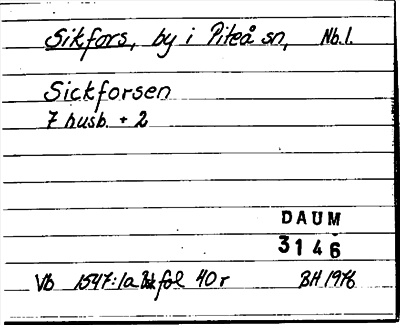 Sikfors, by i Piteå sn, Nb.l.
Sickforsen
7 husb. + 2
DAUM
3146
Vb 1547:1a fol 40r BH 1976